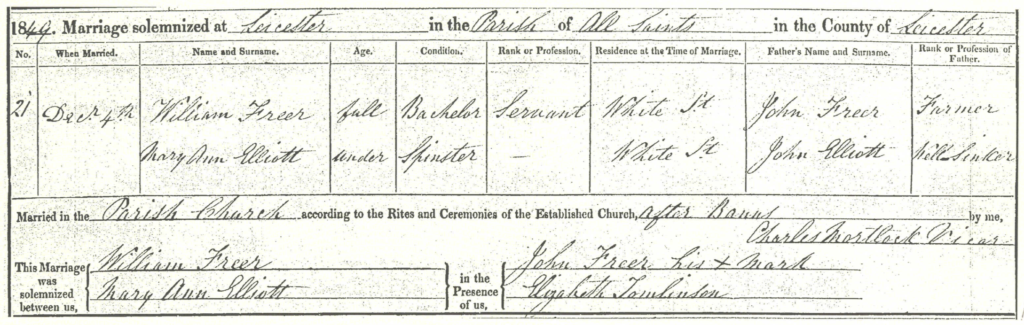 1849. Marriage solemnized at Leicester in the Parish of All Saints in the County of Leicester
No. When Married. Name and Surname. Age. Condition. Rank or Profession. Residence at the Time of Marriage. Father's Name and Surname. Rank or Profession of Father.
21 Decr 4th William Freer full Bachelor Servant White St John Freer Farmer
Mary Ann Elliott under Spinster — White St John Elliott Well Sinker
Married in the Parish Church according to the Rites and Ceremonies of the Established Church, after Banns by me,
Charles Mortlock Vicar
This Marriage was solemnized between us, William Freer in the Presence of us, John Freer his x mark
Mary Ann Elliott Elizabeth Tomlinson